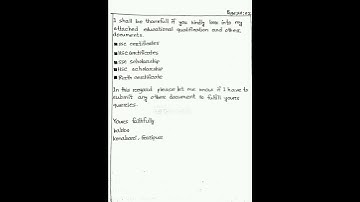 I shall be thankfull if you kindly look into my
attached educational qualification and other
documents.
SSC certificates
HSC certificates
SSC scholarship
HSC scholarship
Birth certificate
In this regard please let me know if I have to
submit any other document to fulfill yours
queries.
Yours faithfully